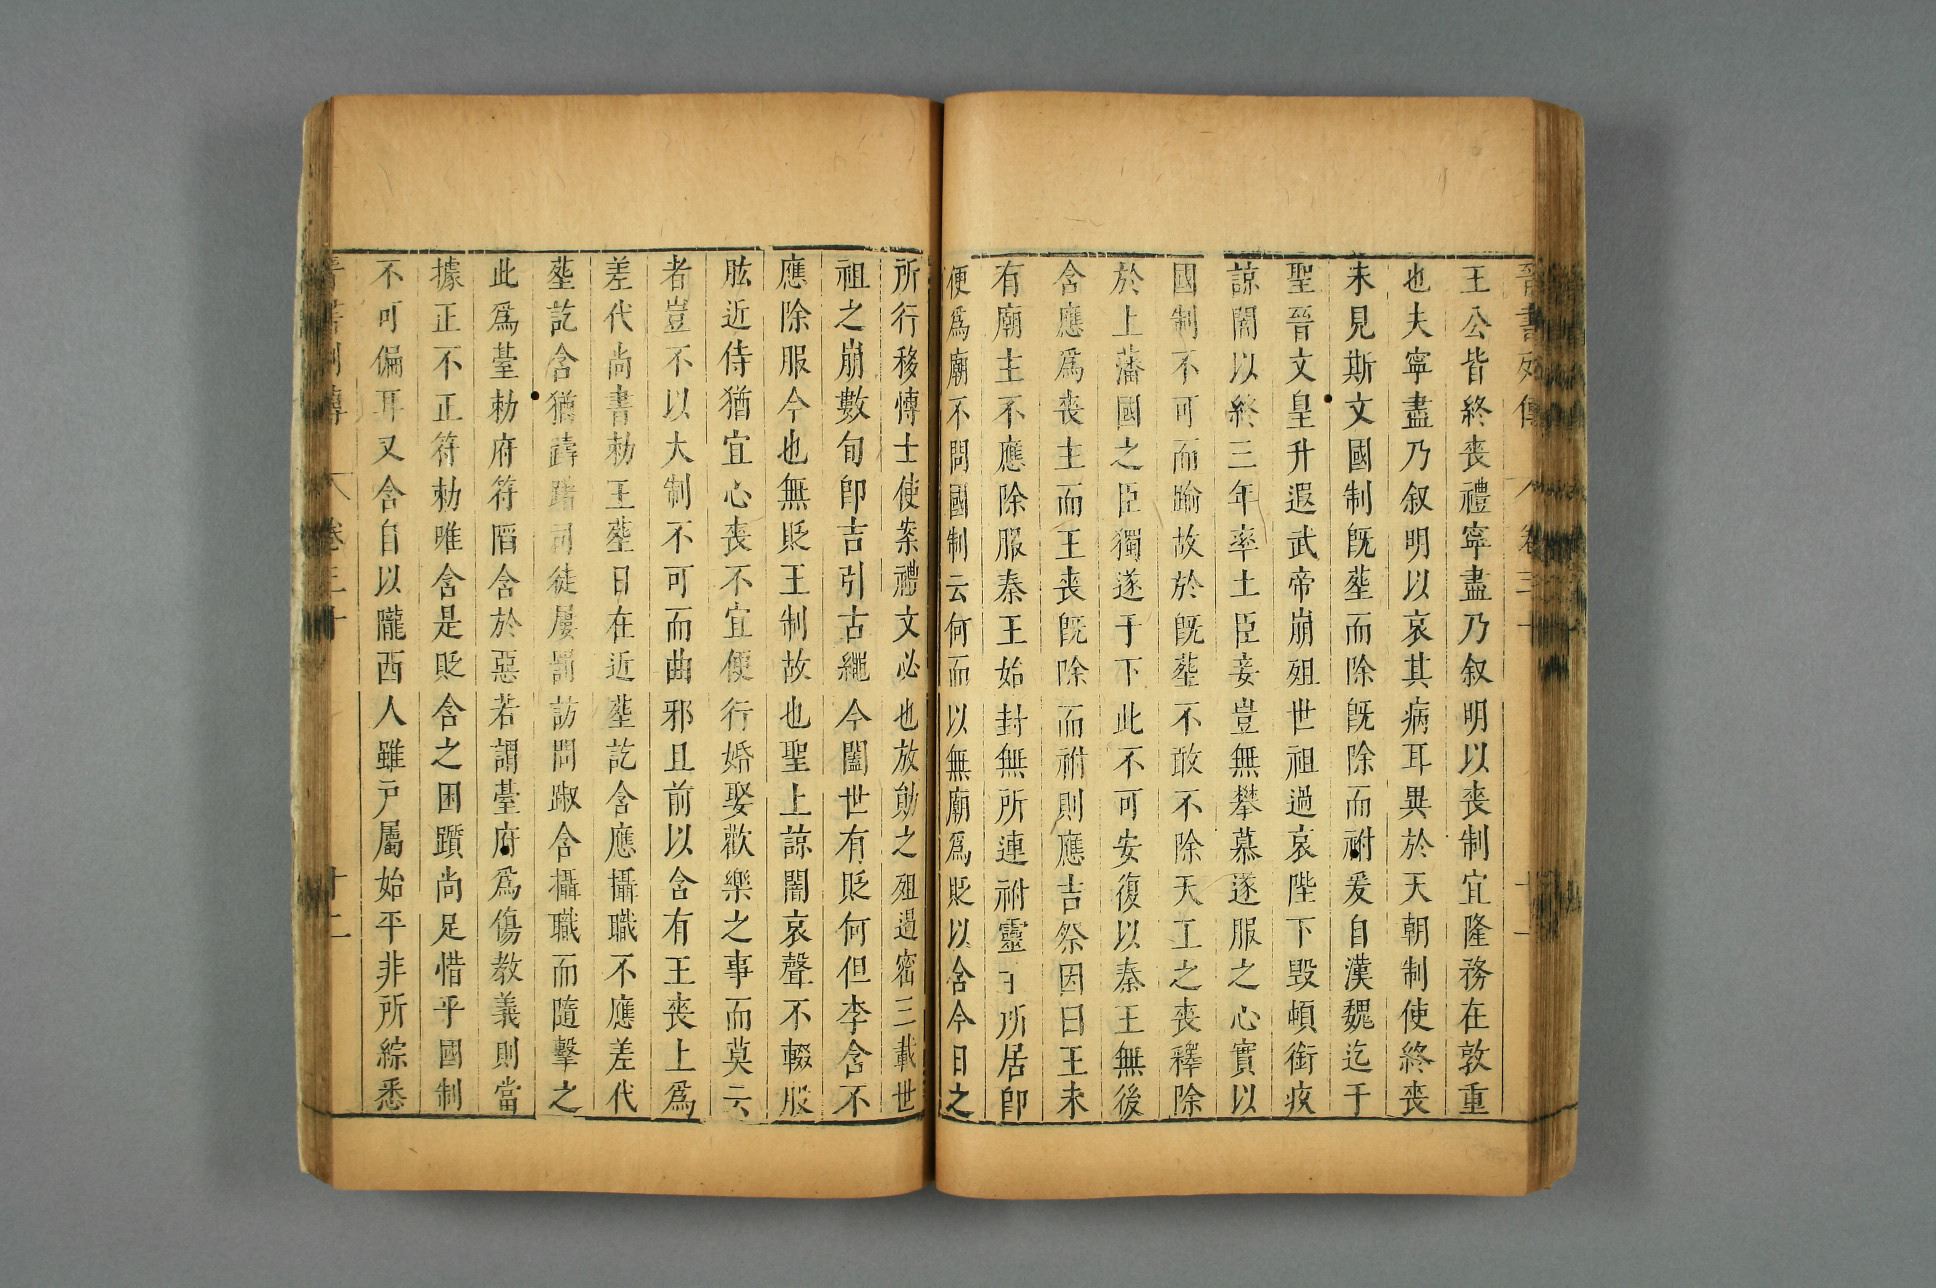 晉書列傳 卷三十 十一
王公皆終喪禮寧盡乃叙明以喪制宜隆務在敦重
也夫寧盡乃叙明以哀其病耳異於天朝制使終喪
未見斯文國制既塟而除既除而祔爰自漢魏迄于
聖晉文皇升遐武帝崩殂世祖過哀陛下毀頓銜疚
諒闇以終三年率土臣妾豈無攀慕遂服之心實以
國制不可而踰故於既塟不敢不除天王之喪釋除
於上藩國之臣獨遂于下此不可安復以秦王無後
含應爲喪主而王喪既除而祔則應吉祭因曰王未
有廟主不應除服秦王始封無所連祔靈主所居即
便爲廟不問國制云何而以無廟爲貶以含今日之
所行移博士使案禮文必也放勛之殂遏密三載世
祖之崩數旬即吉引古繩今闔世有貶何但李含不
應除服今也無貶王制故也聖上諒闇哀聲不輟股
肱近侍猶宜心喪不宜便行婚娶歡樂之事而莫云
者豈不以大制不可而曲邪且前以含有王喪上爲
差代尚書勑王塟日在近塟訖含應攝職不應差代
塟訖含猶躊躇司徒屢罰訪問踧含攝職而隨擊之
此爲臺勑府符陷含於惡若謂臺府爲傷教義則當
據正不正符勑唯含是貶含之困躓尚足惜乎國制
不可偏耳又含自以隴西人雖戸屬始平非所綜悉
晉書列傳 卷三十 十二